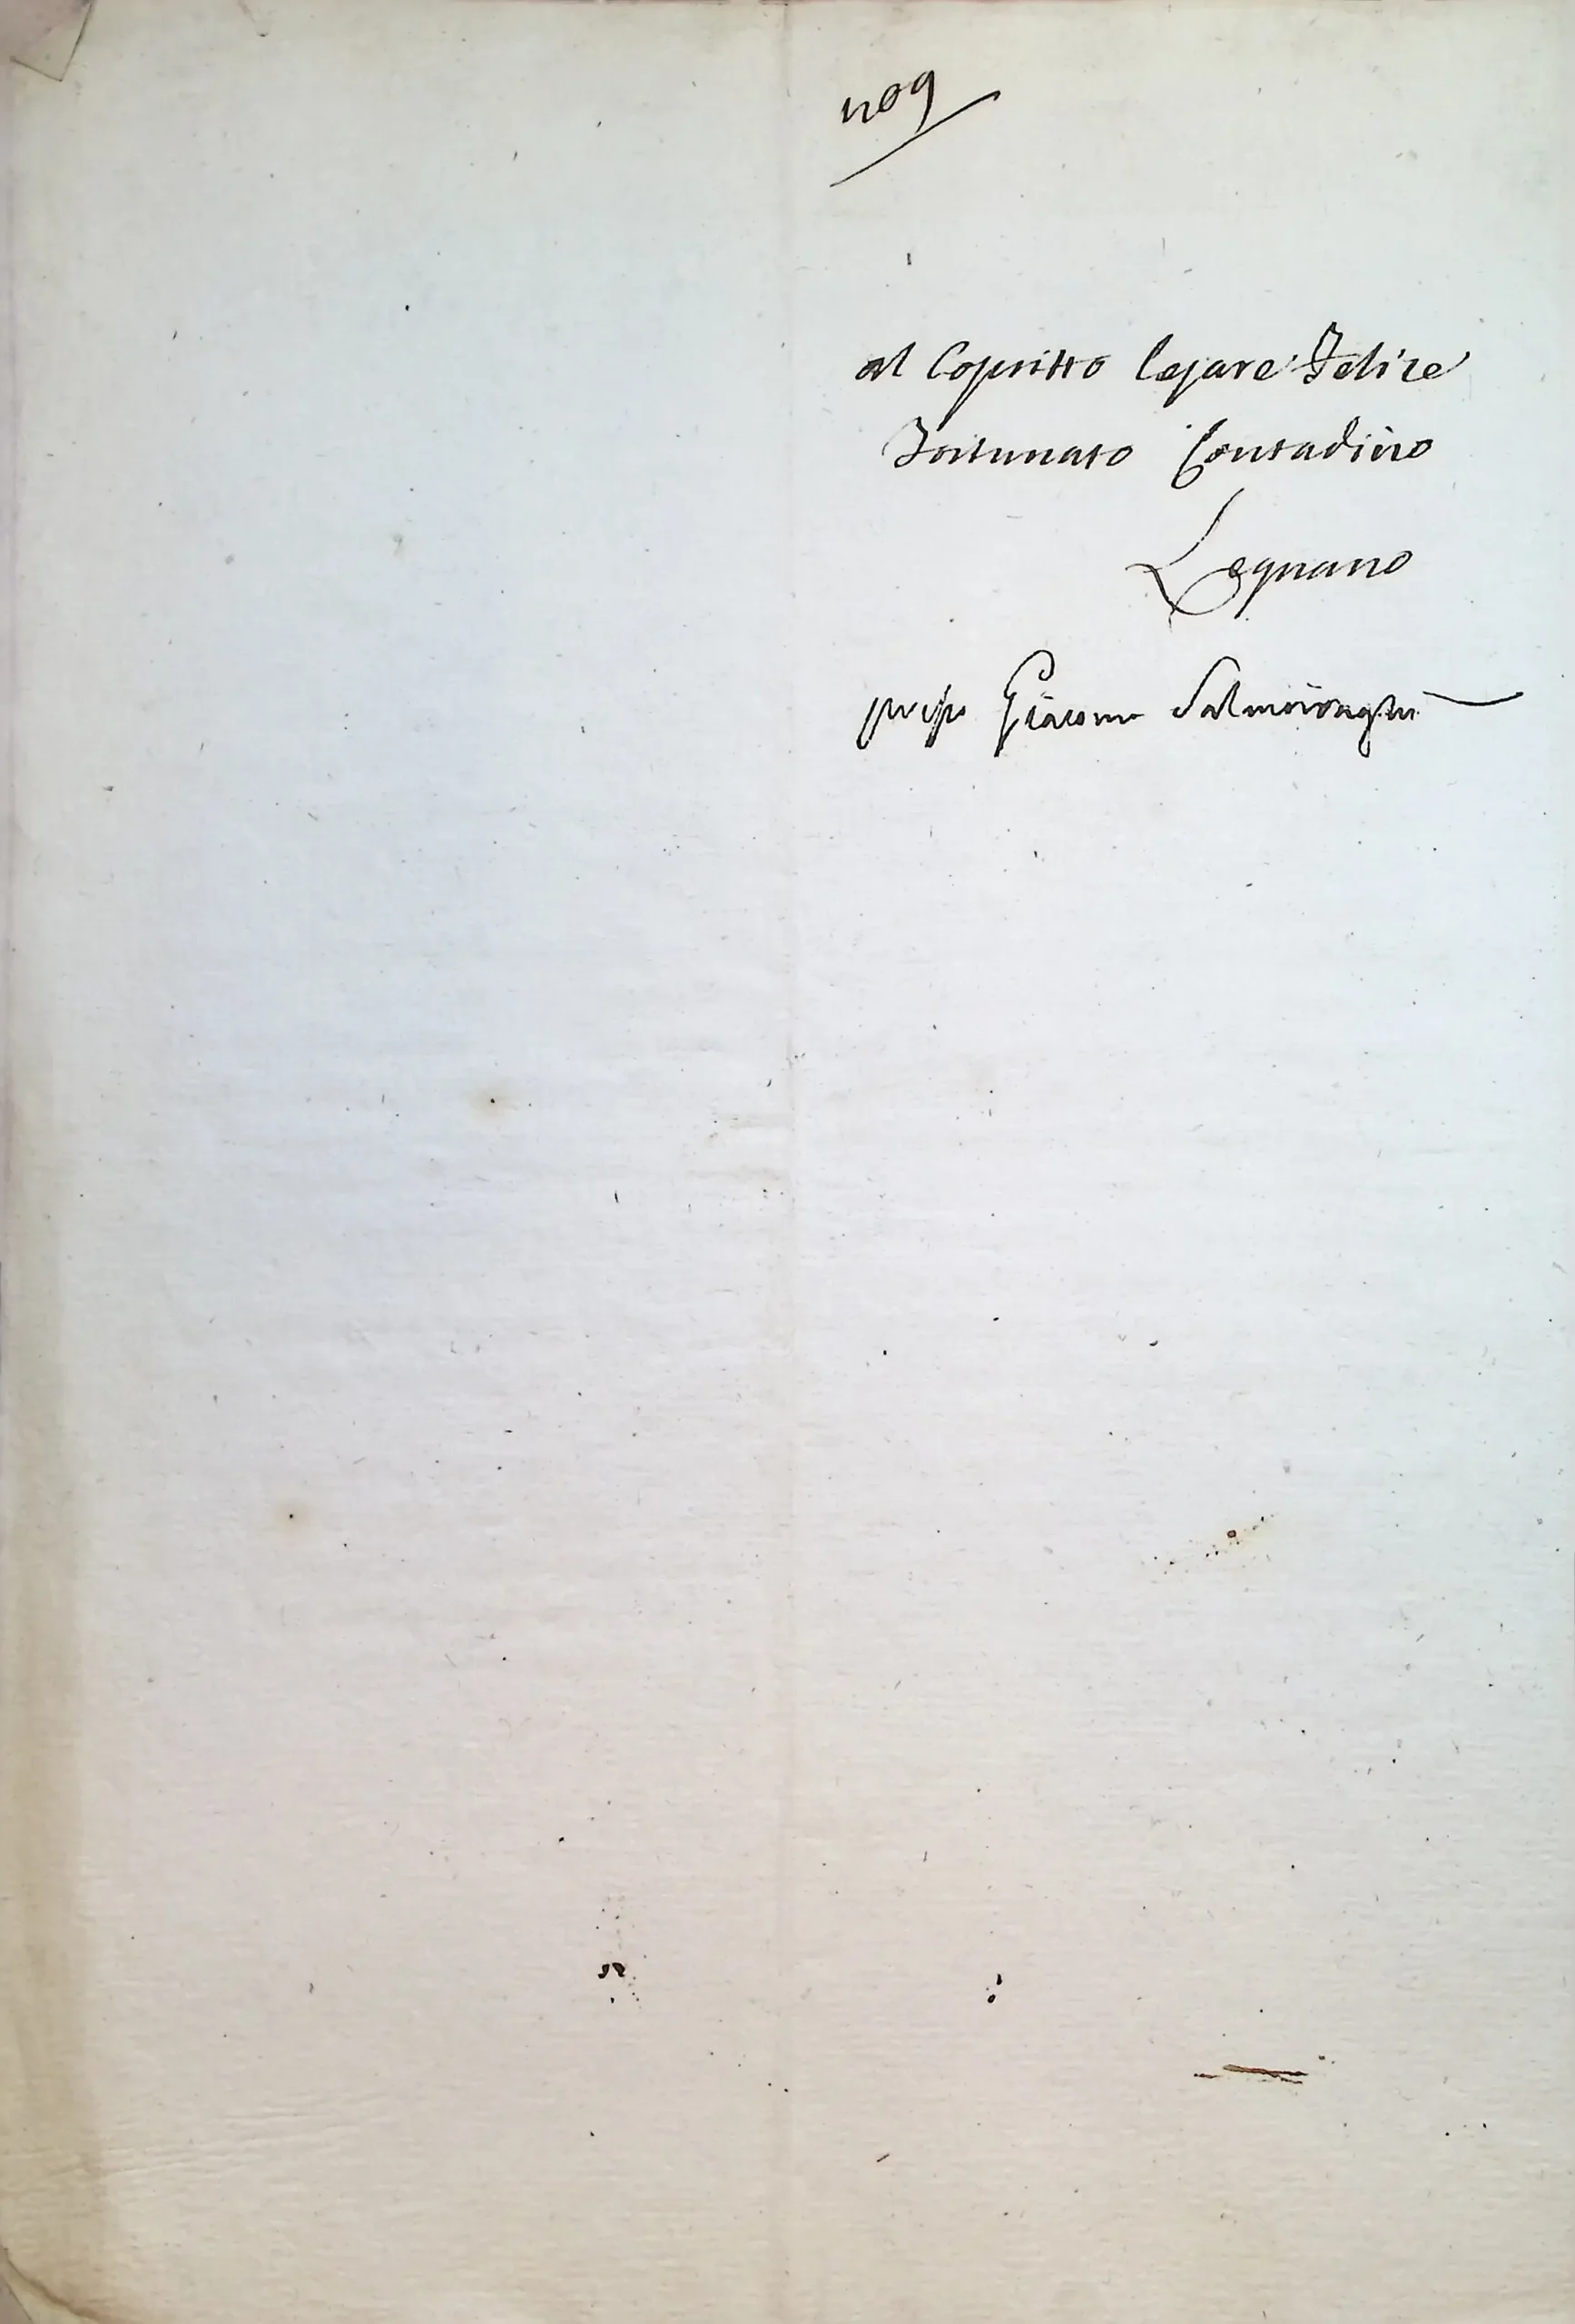 1209
al Coscritto Cesare Felice
Fortunato Contadino
Legnano
presso Giacomo Salmoiraghi